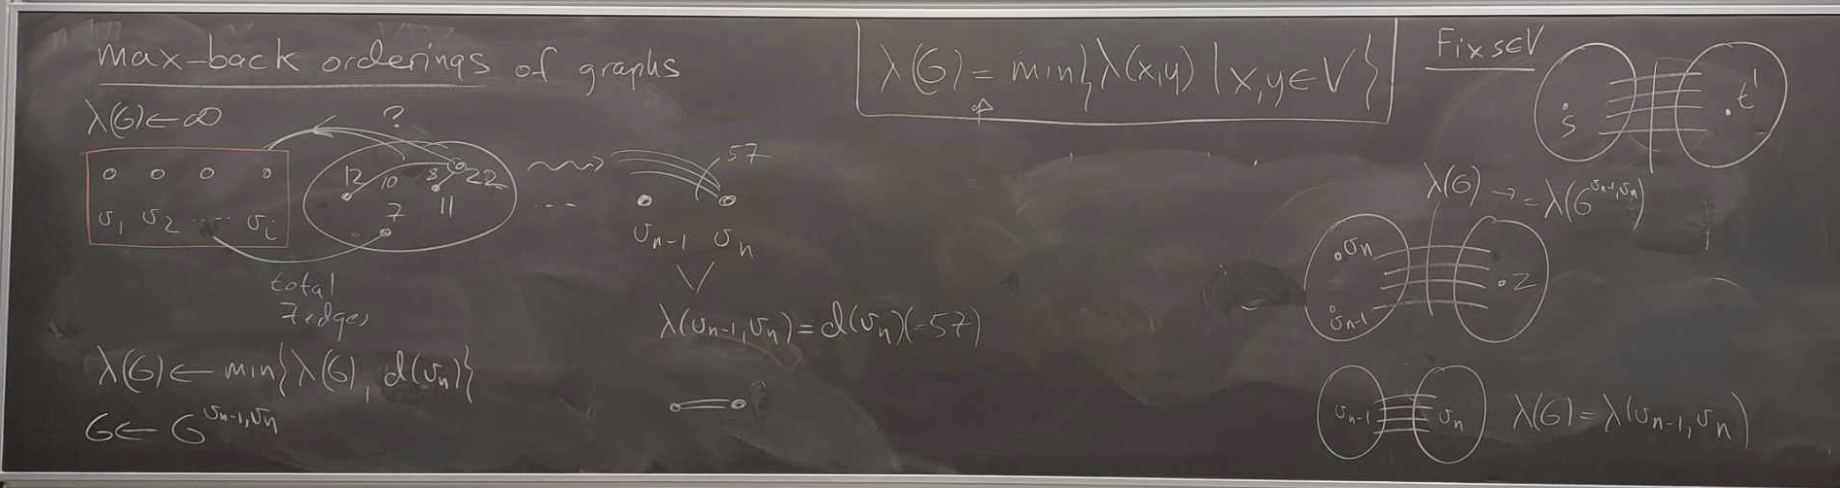 max-back orderings of graphs
λ(G) ← ∞
?
12 10 8 22
7 11
v₁ v₂ ..... vᵢ
total
7 edges
57
vₙ₋₁ vₙ
λ(vₙ₋₁, vₙ) = d(vₙ)(=57)
λ(G) ← min{λ(G), d(vₙ)}
G ← G^{vₙ₋₁,vₙ}
λ(G) = min{λ(x,y) | x,y ∈ V}
Fix s∈V
s t
λ(G) → = λ(G^{vₙ₋₁,vₙ})
vₙ
vₙ₋₁ z
vₙ₋₁ vₙ λ(G) = λ(vₙ₋₁, vₙ)